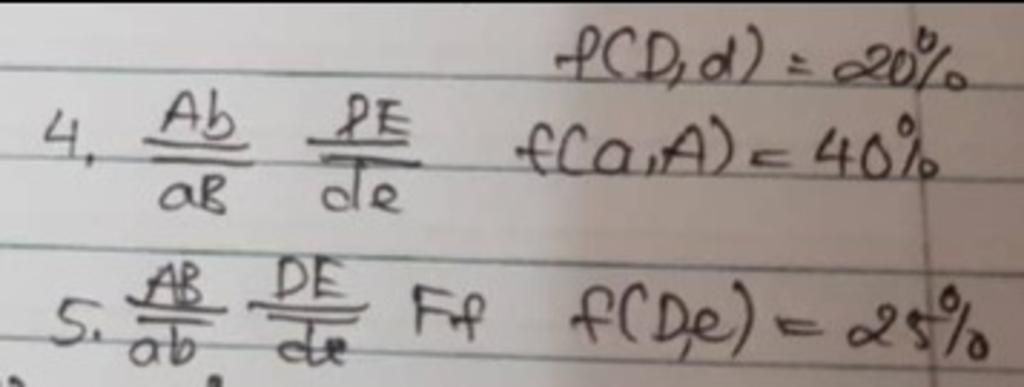 f(D,d) = 20%
4. Ab/aB DE/de f(a,A) = 40%
5. AB/ab DE/de Ff f(D,e) = 25%